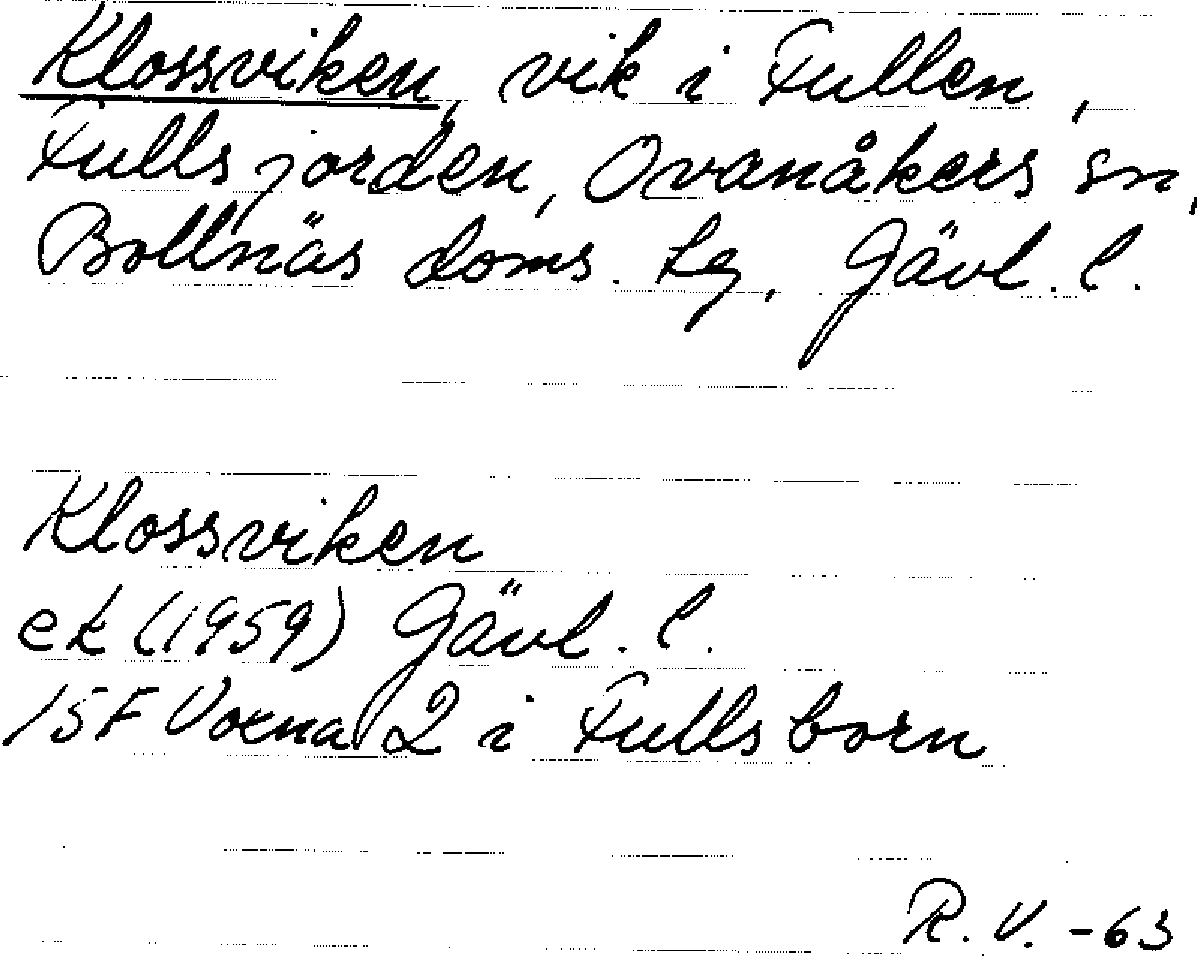 Klossviken, vik i Fullen,
Fullsjorden, Ovanåkers sn,
Bollnäs doms. Lg, Gävl. l.
Klossviken
ek (1959) Gävl. l.
15F Voxna 2 i Fullsborn
R. V. -63